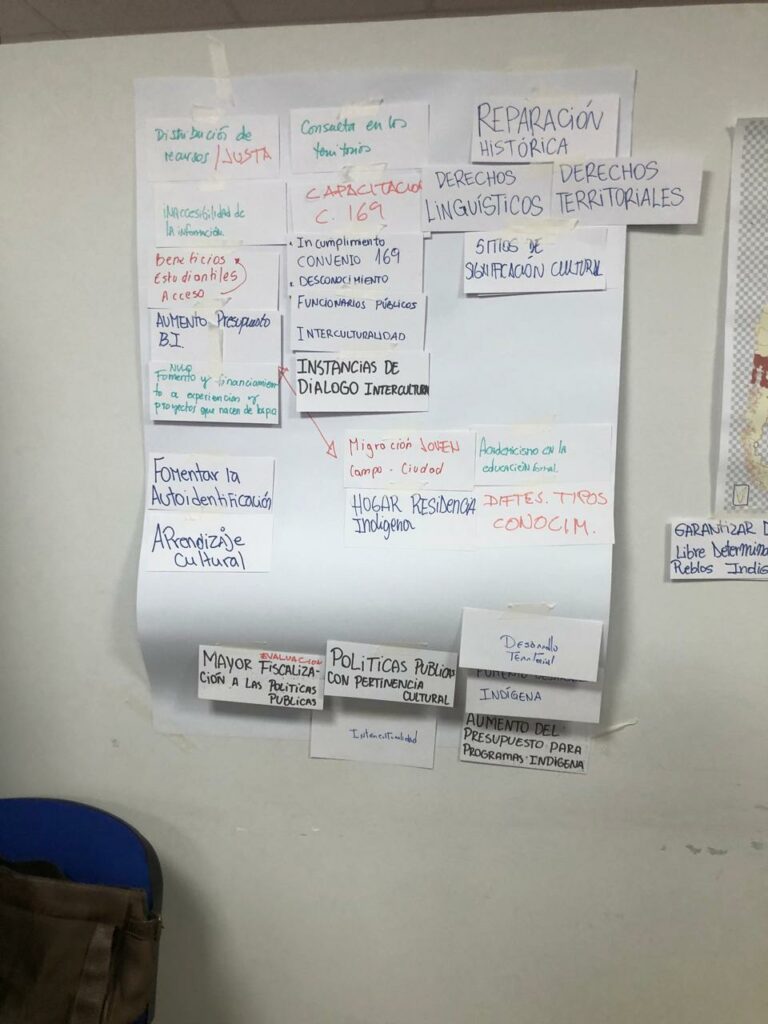 Distribución de
recursos / JUSTA
INACCESIBILIDAD DE
la información
Beneficios
Estudiantiles
Acceso
AUMENTO Presupuesto
B.I.
Fomento y financiamien
to a experiencias y
proyectos que nacen de
Fomentar la
Autoidentificación
APrendizaje
Cultural
Consulta en los
territorios
CAPACITACIO
C. 169
• Incumplimiento
CONVENIO 169
• DESCONOCIMIENTO
FUNCIONARIOS PÚBLICOS
INTERCULTURALIDAD
INSTANCIAS DE
DIALOGO INTERCULTURA
REPARACIÓN
HISTÓRICA
DERECHOS
LINGUÍSTICOS
DERECHOS
TERRITORIALES
SITIOS DE
SIGNIFICACIÓN CULTURAL
Migración JOVEN
Campo - Ciudad
HOGAR RESIDENCIA
Indígena
Academicismo en la
educación formal.
DIFTES. TIPOS
CONOCIM.
MAYOR FISCALIZA-
EVALUACION
CIÓN A LAS POLITICAS
PUBLICAS
POLITICAS PUBLICAS
CON PERTINENCIA
CULTURAL
Interculturalidad
Desarrollo
Territorial
INDÍGENA
AUMENTO DEL
PRESUPUESTO PARA
PROGRAMAS INDIGENA
GARANTIZAR
Libre Determina
Pueblos Indig